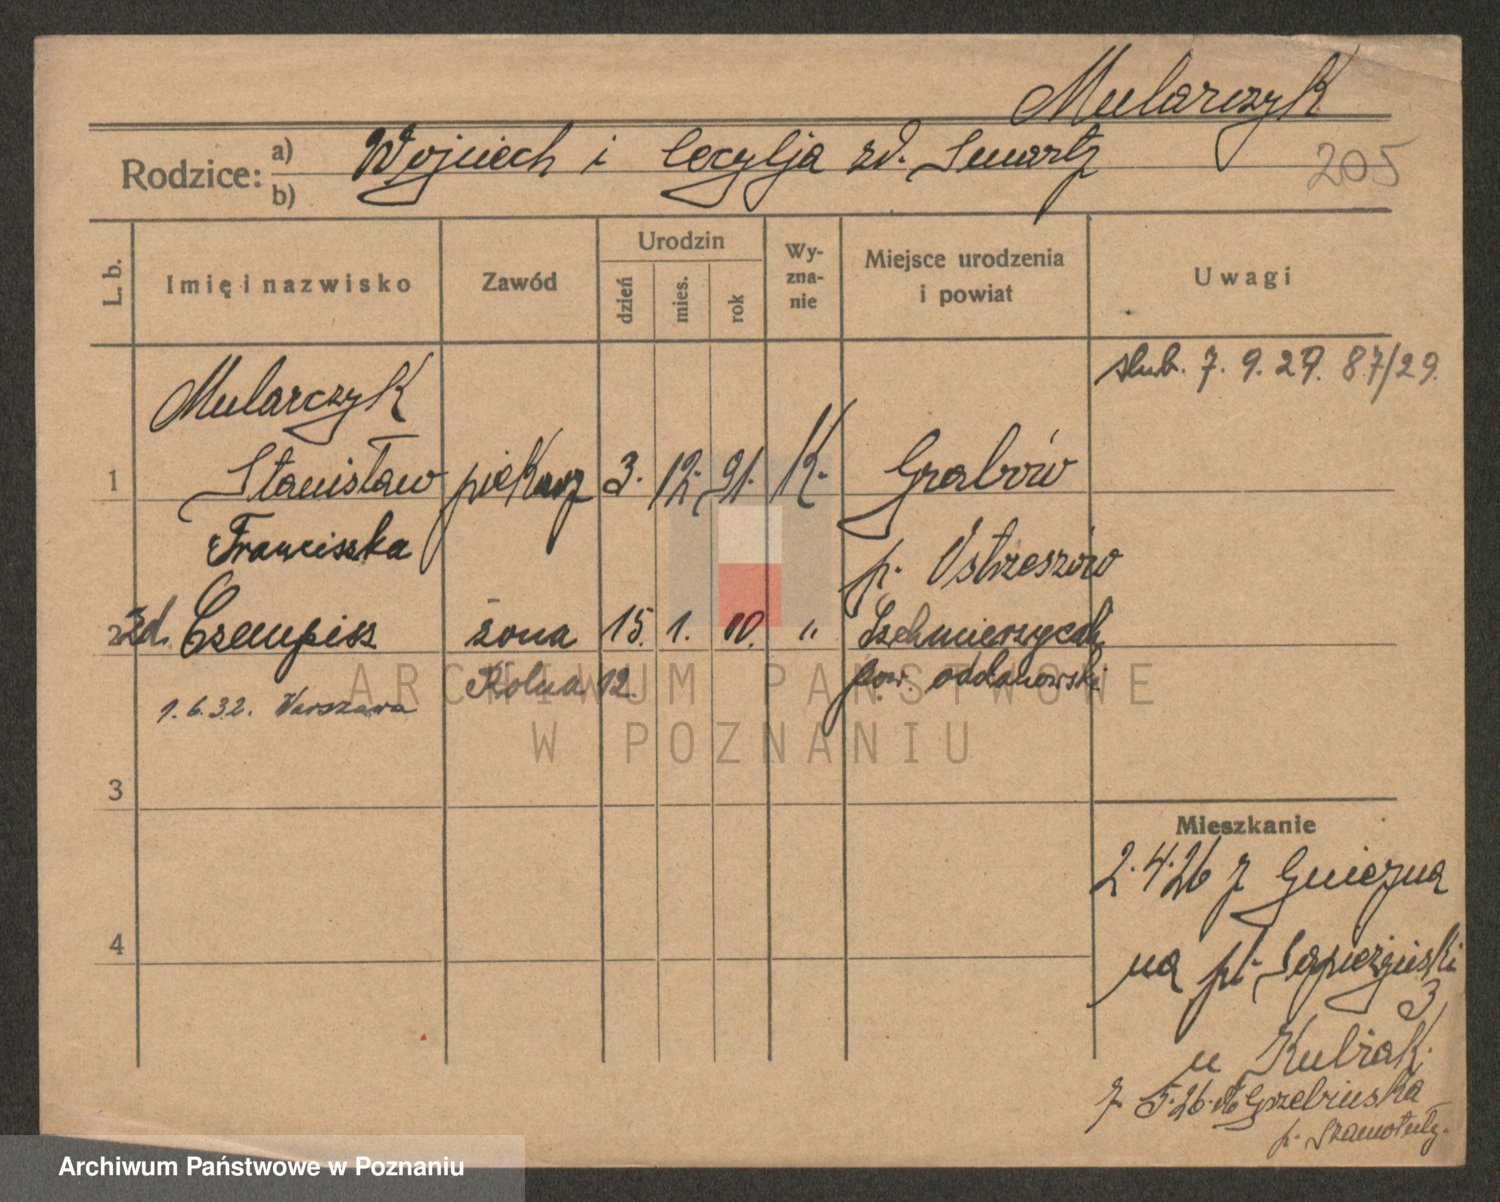 Mularczyk
Rodzice: a) b) Wojciech i Cecylja zd. Smartz
205
L. b.
Imię i nazwisko
Zawód
Urodzin
dzień
mies.
rok
Wy-
zna-
nie
Miejsce urodzenia
i powiat
Uwagi
ślub. 7. 9. 29. 87/29.
Mularczyk
1 Stanisław piekarz 3. 12. 91. K. Grabów
p. Ostrzeszów
Franciszka
2 zd. Czempisz żona 15. 1. 10. "
pow. odolanowski
Kolna 12.
1.6.32. Warszawa
3
4
Mieszkanie
2.4.26 z Gniezna
na pl. Sapieżyński
3
u Kubiak.
7 5.26. do Grzebieniska
p. Szamotuły.
ARCHIWUM PAŃSTWOWE
W POZNANIU
Archiwum Państwowe w Poznaniu